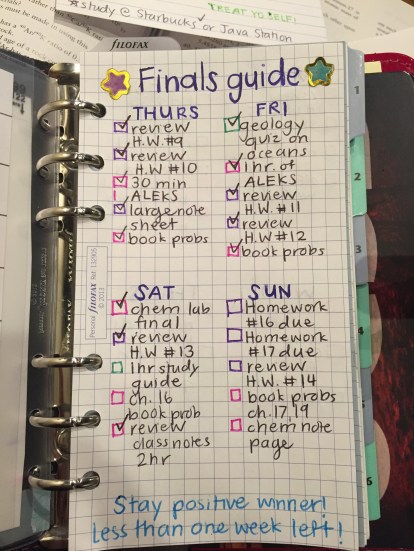 ☆study @ Starbucks or Java Station
TREAT YOSELF!
FILOFAX
Finals guide
THURS
review
H.W. #9
review
H.W #10
30 min
ALEKS
large note
sheet
book probs
FRI
geology
quiz on
oceans
1 hr. of
ALEKS
review
H.W. #11
review
H.W #12
book probs
SAT
chem lab
final
review
H.W #13
1 hr study
guide
ch. 16
book prob
review
class notes
2hr
SUN
Homework
#16 due
Homework
#17 due
review
H.W. #14
book probs
ch. 17, 19
chem note
page
Stay positive winner!
Less than one week left!
Personal FILOFAX Ref: 132905
© 2013
1
2
3
4
5
6